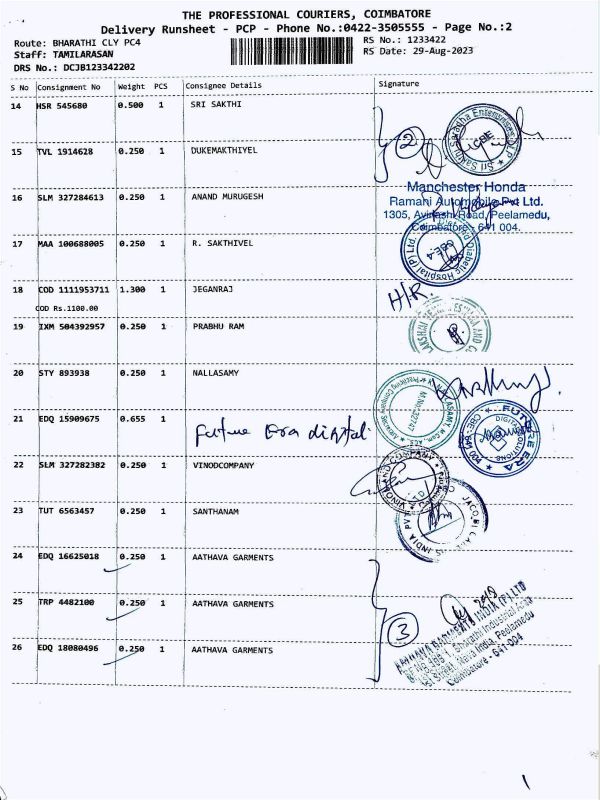 THE PROFESSIONAL COURIERS, COIMBATORE
Delivery Runsheet - PCP - Phone No.:0422-3505555 - Page No.:2
Route: BHARATHI CLY PC4 RS No.: 1233422
Staff: TAMILARASAN RS Date: 29-Aug-2023
DRS No.: DCJB123342202
S No Consignment No Weight PCS Consignee Details Signature
14 HSR 545680 0.500 1 SRI SAKTHI
2
Sri Sakthi
CBE
15 TVL 1914628 0.250 1 DUKEMAKTHIYEL
16 SLM 327284613 0.250 1 ANAND MURUGESH
Manchester Honda
Ramani Automobile Pvt Ltd.
1305, Avinashi Road, Peelamedu,
Coimbatore - 641 004.
17 MAA 100688005 0.250 1 R. SAKTHIVEL
Diabetic Hospital (P) Ltd.
CBE.4
18 COD 1111953711 1.300 1 JEGANRAJ
COD Rs.1100.00
H/R.
19 IXM 504392957 0.250 1 PRABHU RAM
20 STY 893938 0.250 1 NALLASAMY
M.No:32747
21 EDQ 15909675 0.655 1
Future Era digital
FUTURE ERA
DIGITAL
22 SLM 327282382 0.250 1 VINODCOMPANY
VINOD AND COMPANY
23 TUT 6563457 0.250 1 SANTHANAM
INDIA PVT
24 EDQ 16625018 0.250 1 AATHAVA GARMENTS
25 TRP 4482100 0.250 1 AATHAVA GARMENTS
3
AATHAVA GARMENTS INDIA (P) LTD
Bharathi Industrial Area
1st Street, Nava India, Peelamedu
Coimbatore - 641 004
26 EDQ 18080496 0.250 1 AATHAVA GARMENTS